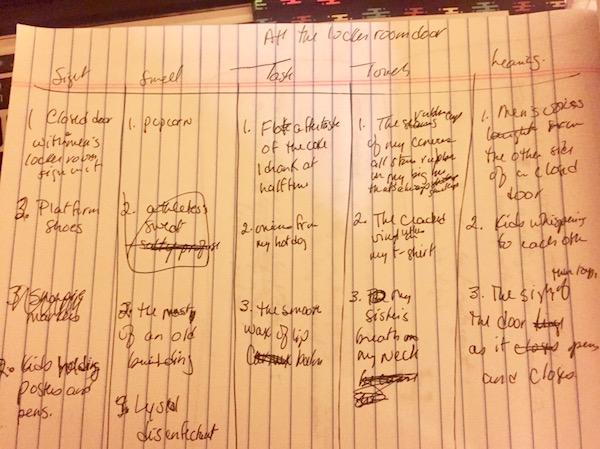 At the locker room door
Sight
1 Closed door
with men's
locker room
sign on it
2. Platform
shoes
3. Sharpie
markers
2. Kids holding
posters and
pens.
Smell
1. popcorn
2. athletes
sweat
3. the musty
of an old
building
Lysol
disenfectant
Taste
1. Flat aftertaste
of the coke
I drank at
half time
2. onions from
my hotdog
3. the smooth
wax of lip
balm
Touch
1. The rubber caps
of my converse
all stars rubbin
on my big toe
that's always
2. The cracked
vinyl
my t-shirt
3. my
sister's
breath on
my neck
because
Hearing.
1. Men's voices
from
the other side
of a closed
door
2. Kids whispering
to each other
3. The sigh of
the door
as it opens
and closes